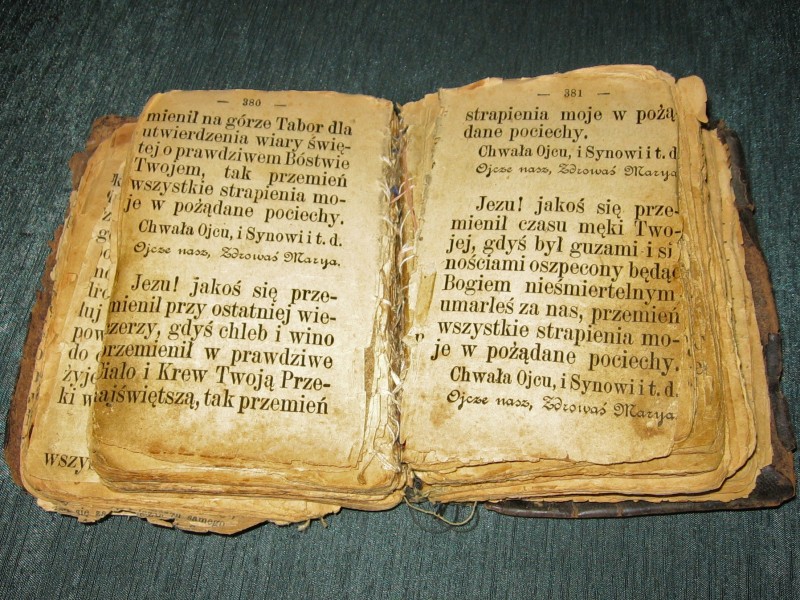 — 380 —
mienił na górze Tabor dla
utwierdzenia wiary świę-
tej o prawdziwem Bóstwie
Twojem, tak przemień
wszystkie strapienia mo-
je w pożądane pociechy.
Chwała Ojcu, i Synowi i t. d.
Ojcze nasz, Zdrowaś Marya.
Jezu! jakoś się prze-
mienił przy ostatniej wie-
czerzy, gdyś chleb i wino
przemienił w prawdziwe
Ciało i Krew Twoją Prze-
najświętszą, tak przemień
— 381 —
strapienia moje w pożą
dane pociechy.
Chwała Ojcu, i Synowi i t. d
Ojcze nasz, Zdrowaś Marya
Jezu! jakoś się prze-
mienił czasu męki Two-
jej, gdyś był guzami i si
nościami oszpecony będąc
Bogiem nieśmiertelnym
umarłeś za nas, przemień
wszystkie strapienia mo-
je w pożądane pociechy.
Chwała Ojcu, i Synowi i t. d.
Ojcze nasz, Zdrowaś Marya